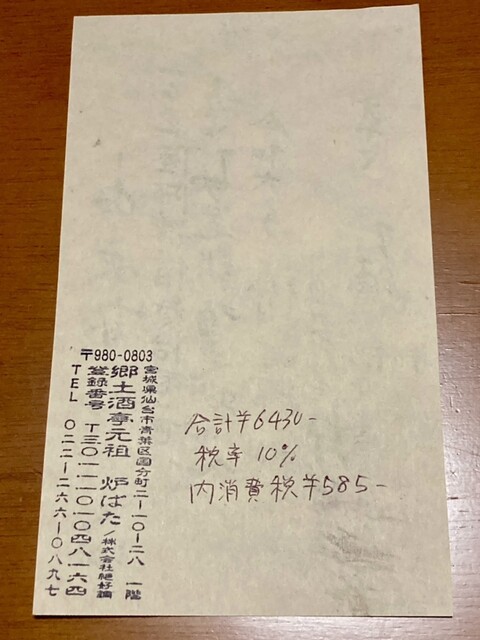 〒980-0803
宮城県仙台市青葉区国分町二ー一〇ー二八 一階
郷土酒亭元祖 炉ばた/株式会社絶好調
登録番号 T三〇一一一〇一〇四八一六四
TEL 〇二二ー二六六ー〇八九七
合計¥6430-
税率 10%
内消費税¥585-